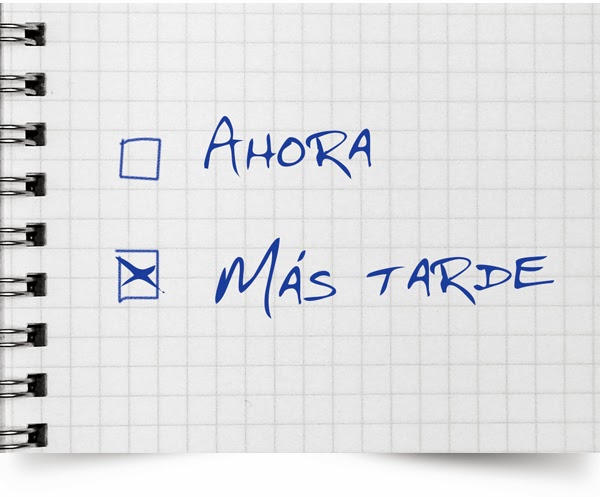 Ahora
Más tarde